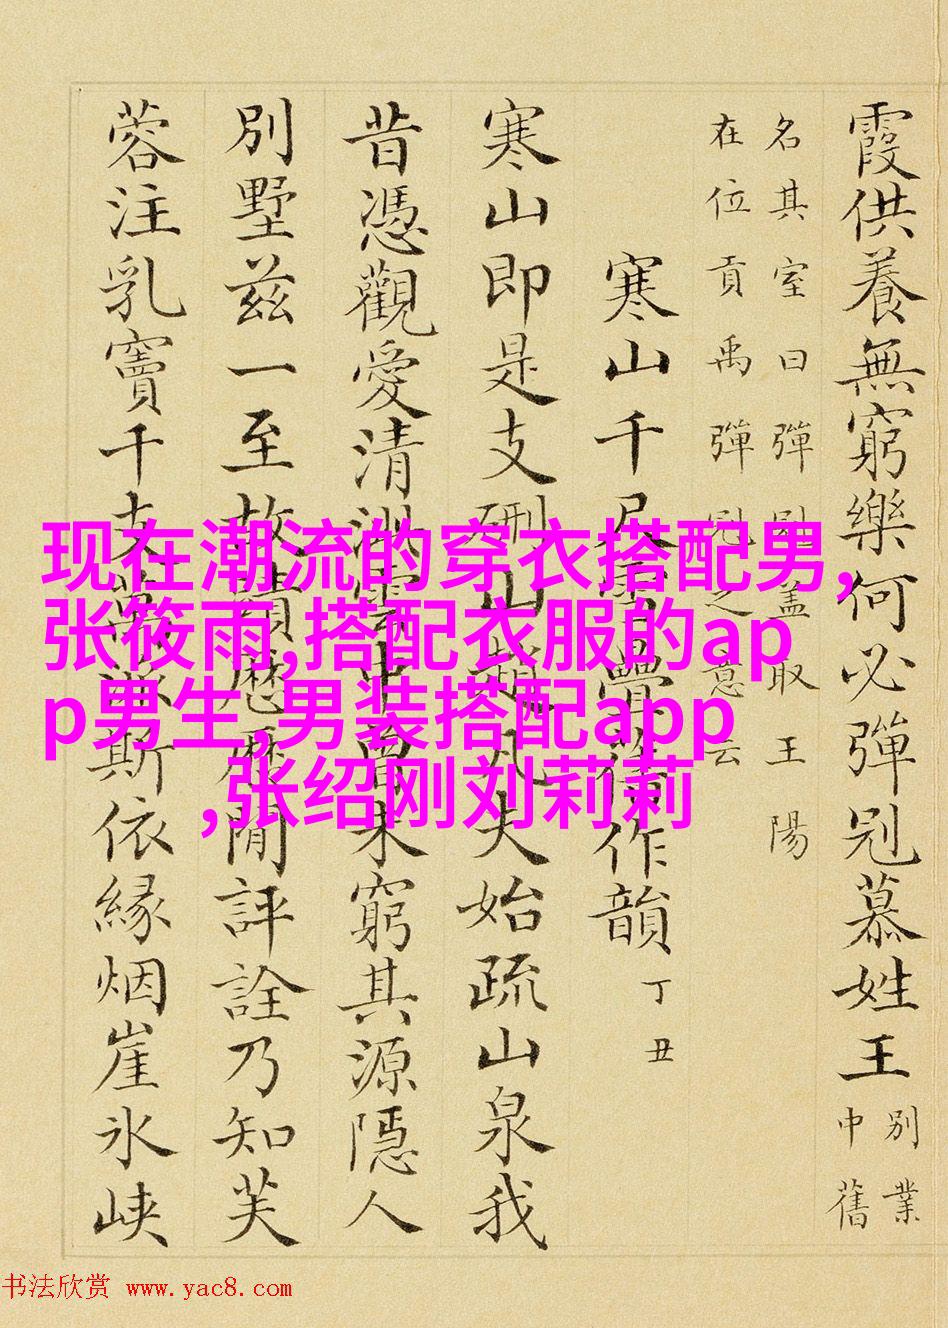 霞供養無窮樂何必彈冠慕姓王
別業
中舊
名其室曰彈冠蓋取王陽
在位貢禹彈冠之意云
寒山千尺雪疊作韻
丁丑
寒山即是支硎山趙凡夫始疏山泉我
昔憑觀愛清雲中曾未窮其源隱人
別墅茲一至故蹟歷歷閒評詮乃知芙
蓉注乳竇千支萬派斯依緣烟崖氷峽
现在潮流的穿衣搭配男,
张筱雨,搭配衣服的ap
p男生,男装搭配app
,张绍刚刘莉莉
书法欣赏 www.yac8.com